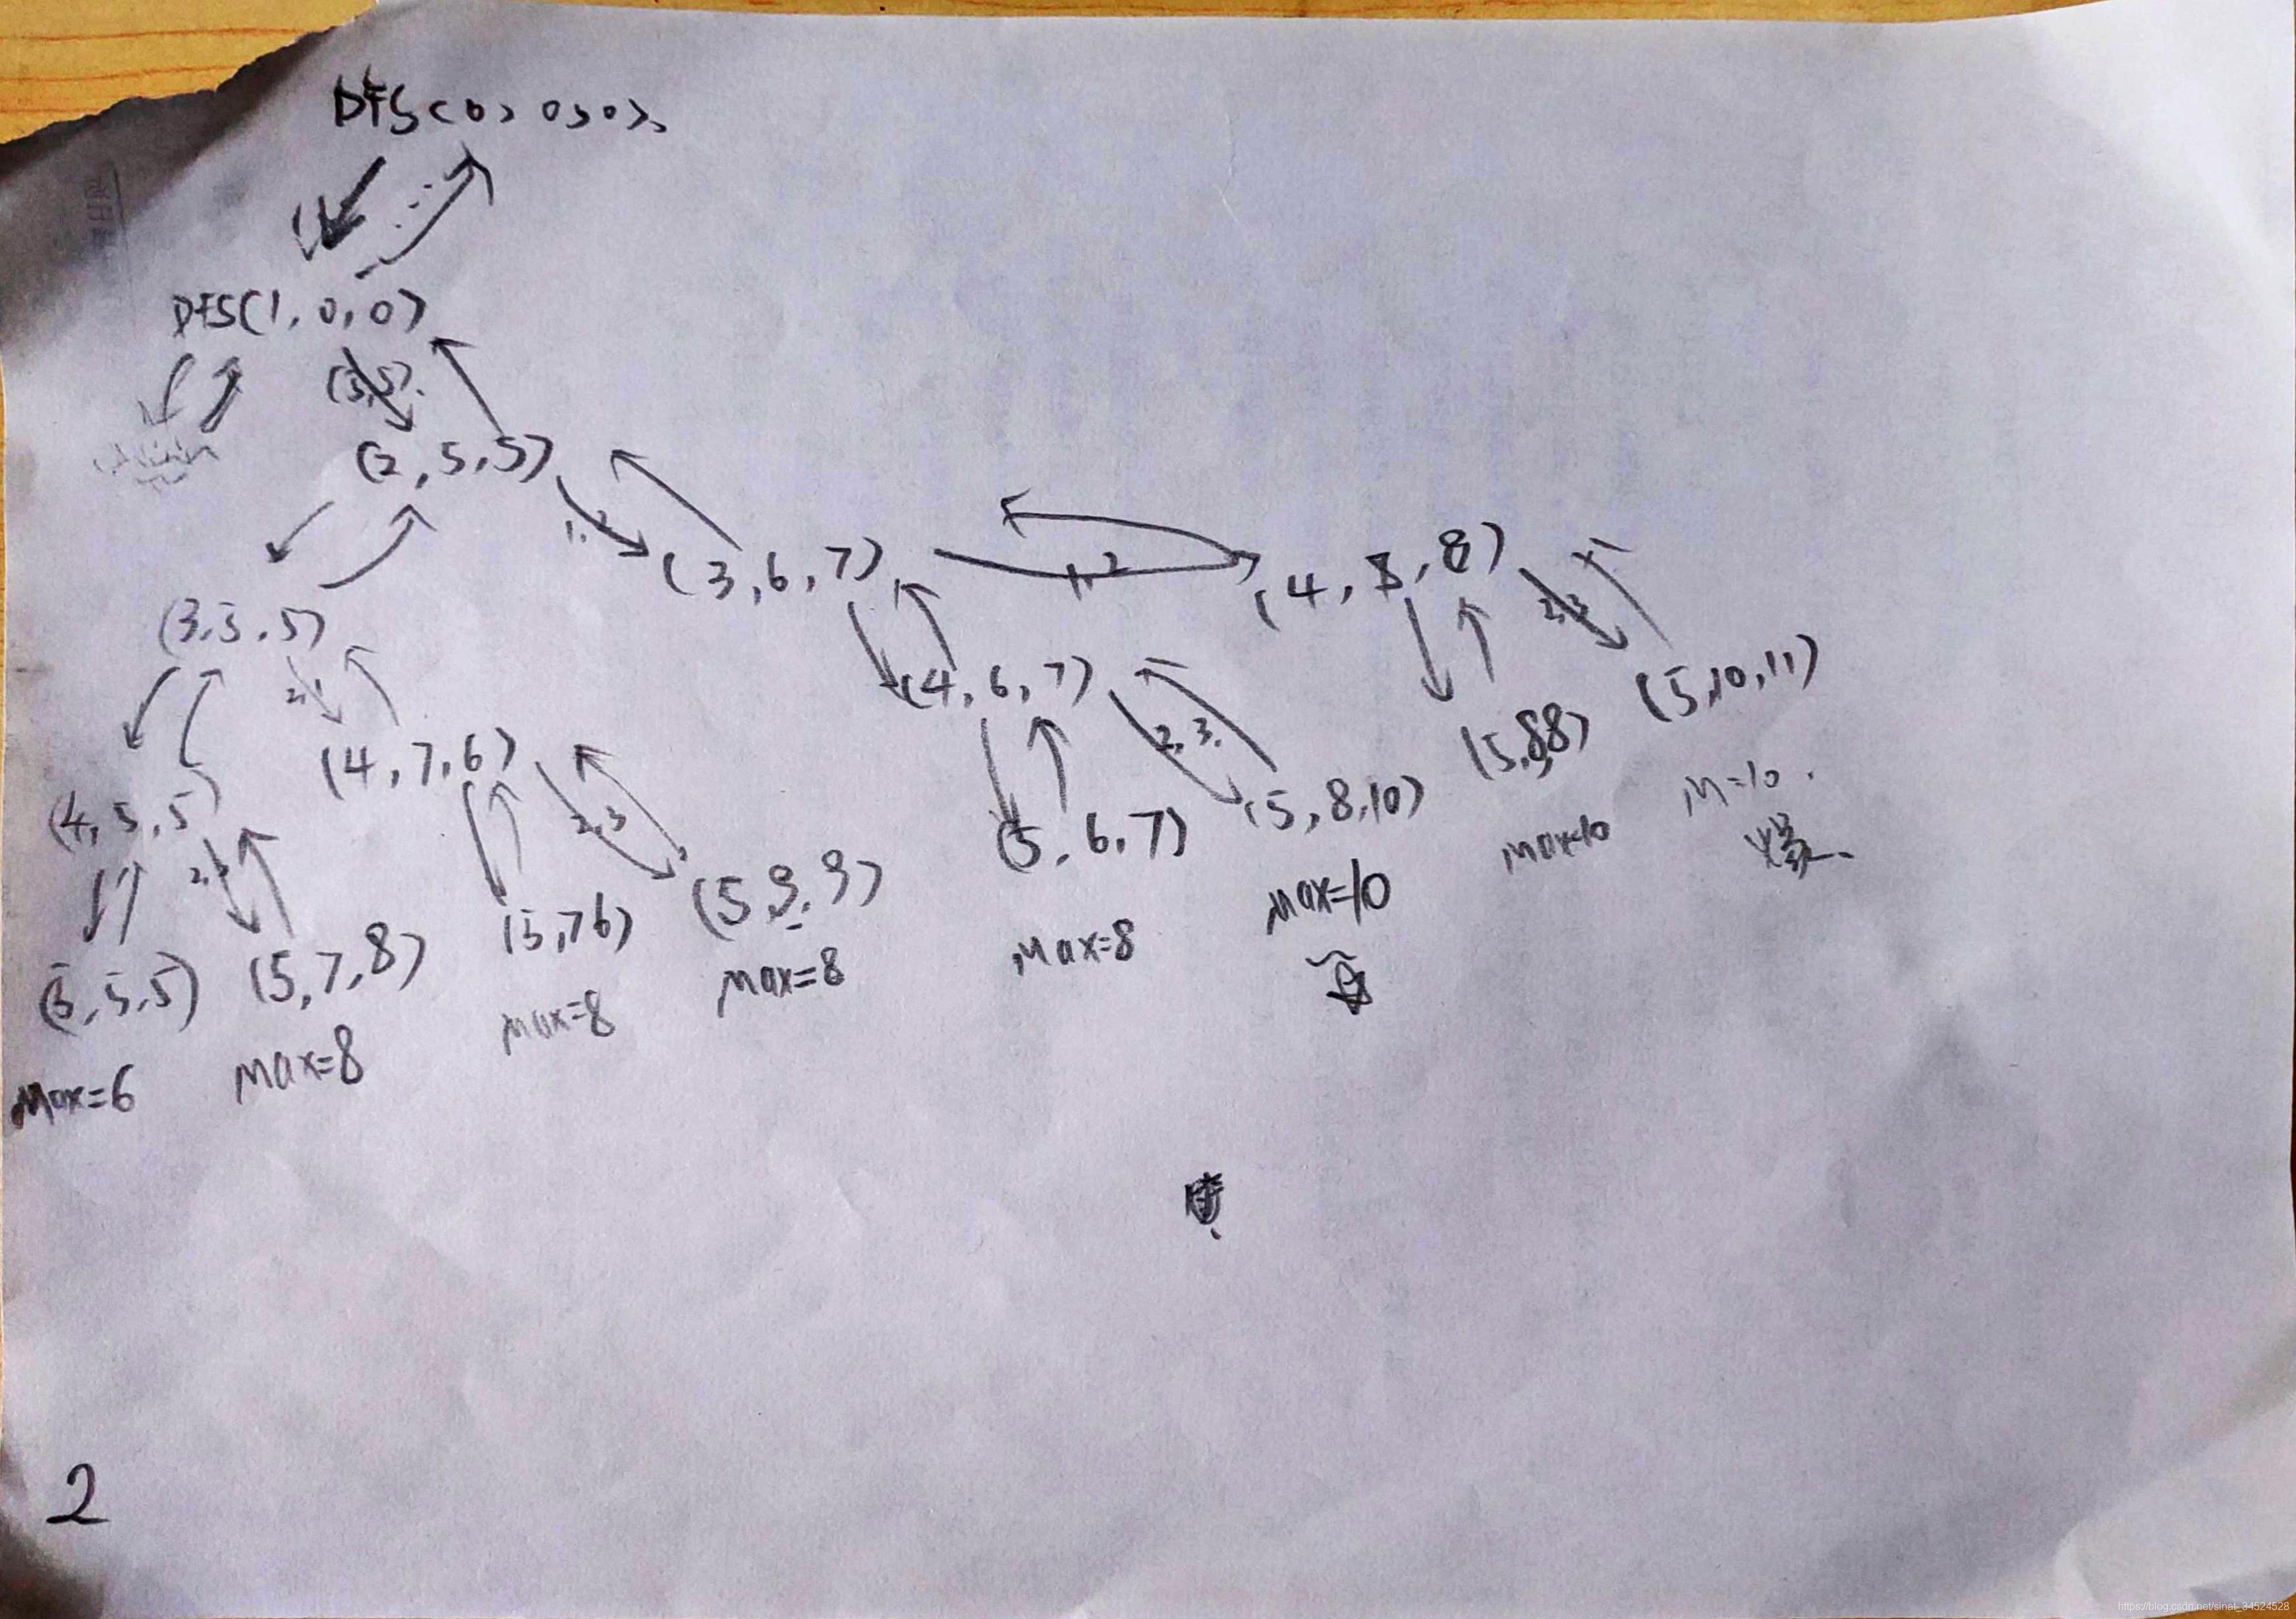 DFS(0,0,0)
DFS(1,0,0)
(2,5,5)
1,2
(3,6,7)
1,2
(4,8,8)
(3,5,5)
(4,6,7)
2,3
(5,10,11)
(4,7,6)
2,3
(5,8,8)
M=10
(4,5,5)
(5,6,7)
(5,8,10)
max=10
爆
(5,9,9)
max=10
(5,7,8)
(5,7 6)
max=8
max=8
(5,5,5)
max=8
max=8
max=6
2
https://blog.csdn.net/sinat_34524528